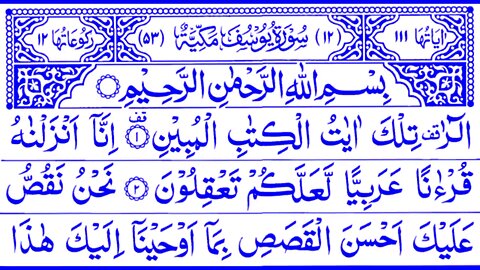 اٰيَاتُهَا ١١١ (١٢) سُوْرَةُ يُوْسُفَ مَكِّيَّةٌ (٥٣) رُكُوْعَاتُهَا ١٢
بِسْمِ اللّٰهِ الرَّحْمٰنِ الرَّحِيْمِ
الٓرٰ قف تِلْكَ اٰيٰتُ الْكِتٰبِ الْمُبِيْنِ ۝١ قف اِنَّاۤ اَنْزَلْنٰهُ
قُرْءٰنًا عَرَبِيًّا لَّعَلَّكُمْ تَعْقِلُوْنَ ۝٢ نَحْنُ نَقُصُّ
عَلَيْكَ اَحْسَنَ الْقَصَصِ بِمَاۤ اَوْحَيْنَاۤ اِلَيْكَ هٰذَا